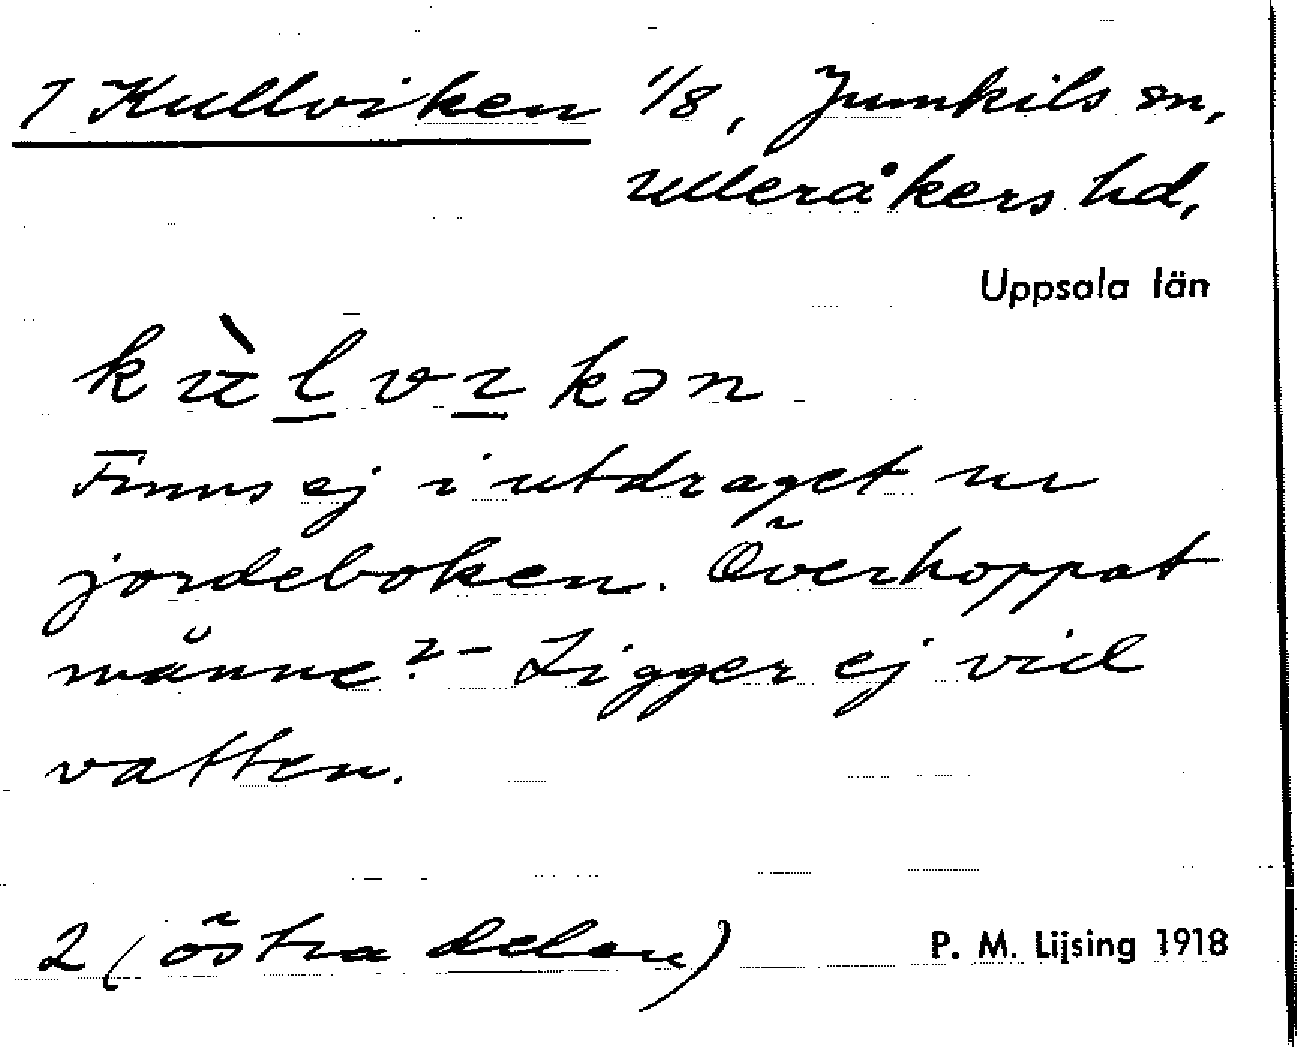 1 Kullviken 1/8, Jumkils sn,
Ulleråkers hd,
Uppsala län
kùlvıkən
Finns ej i utdraget ur
jordeboken. Överhoppat
månne? - Ligger ej vid
vatten.
2 (östra delen)
P. M. Lijsing 1918